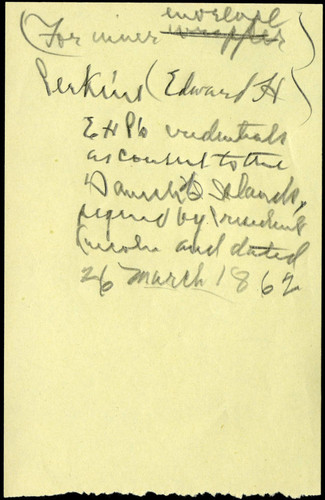 envelope
(For inner wrapper)
Perkins (Edward H)
EHP's credentials
as consul to the
"Danish Islands,"
signed by President
Lincoln and dated
26 March 1862